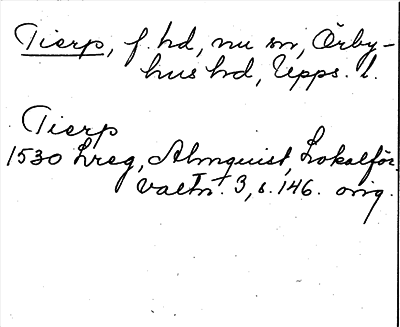 Tierp, f. hd, nu sn, Örby-
hus hd, Upps. l.
Tierp
1530 Lreg, Almquist, Lokalför
valtn. 3, s. 146. orig.